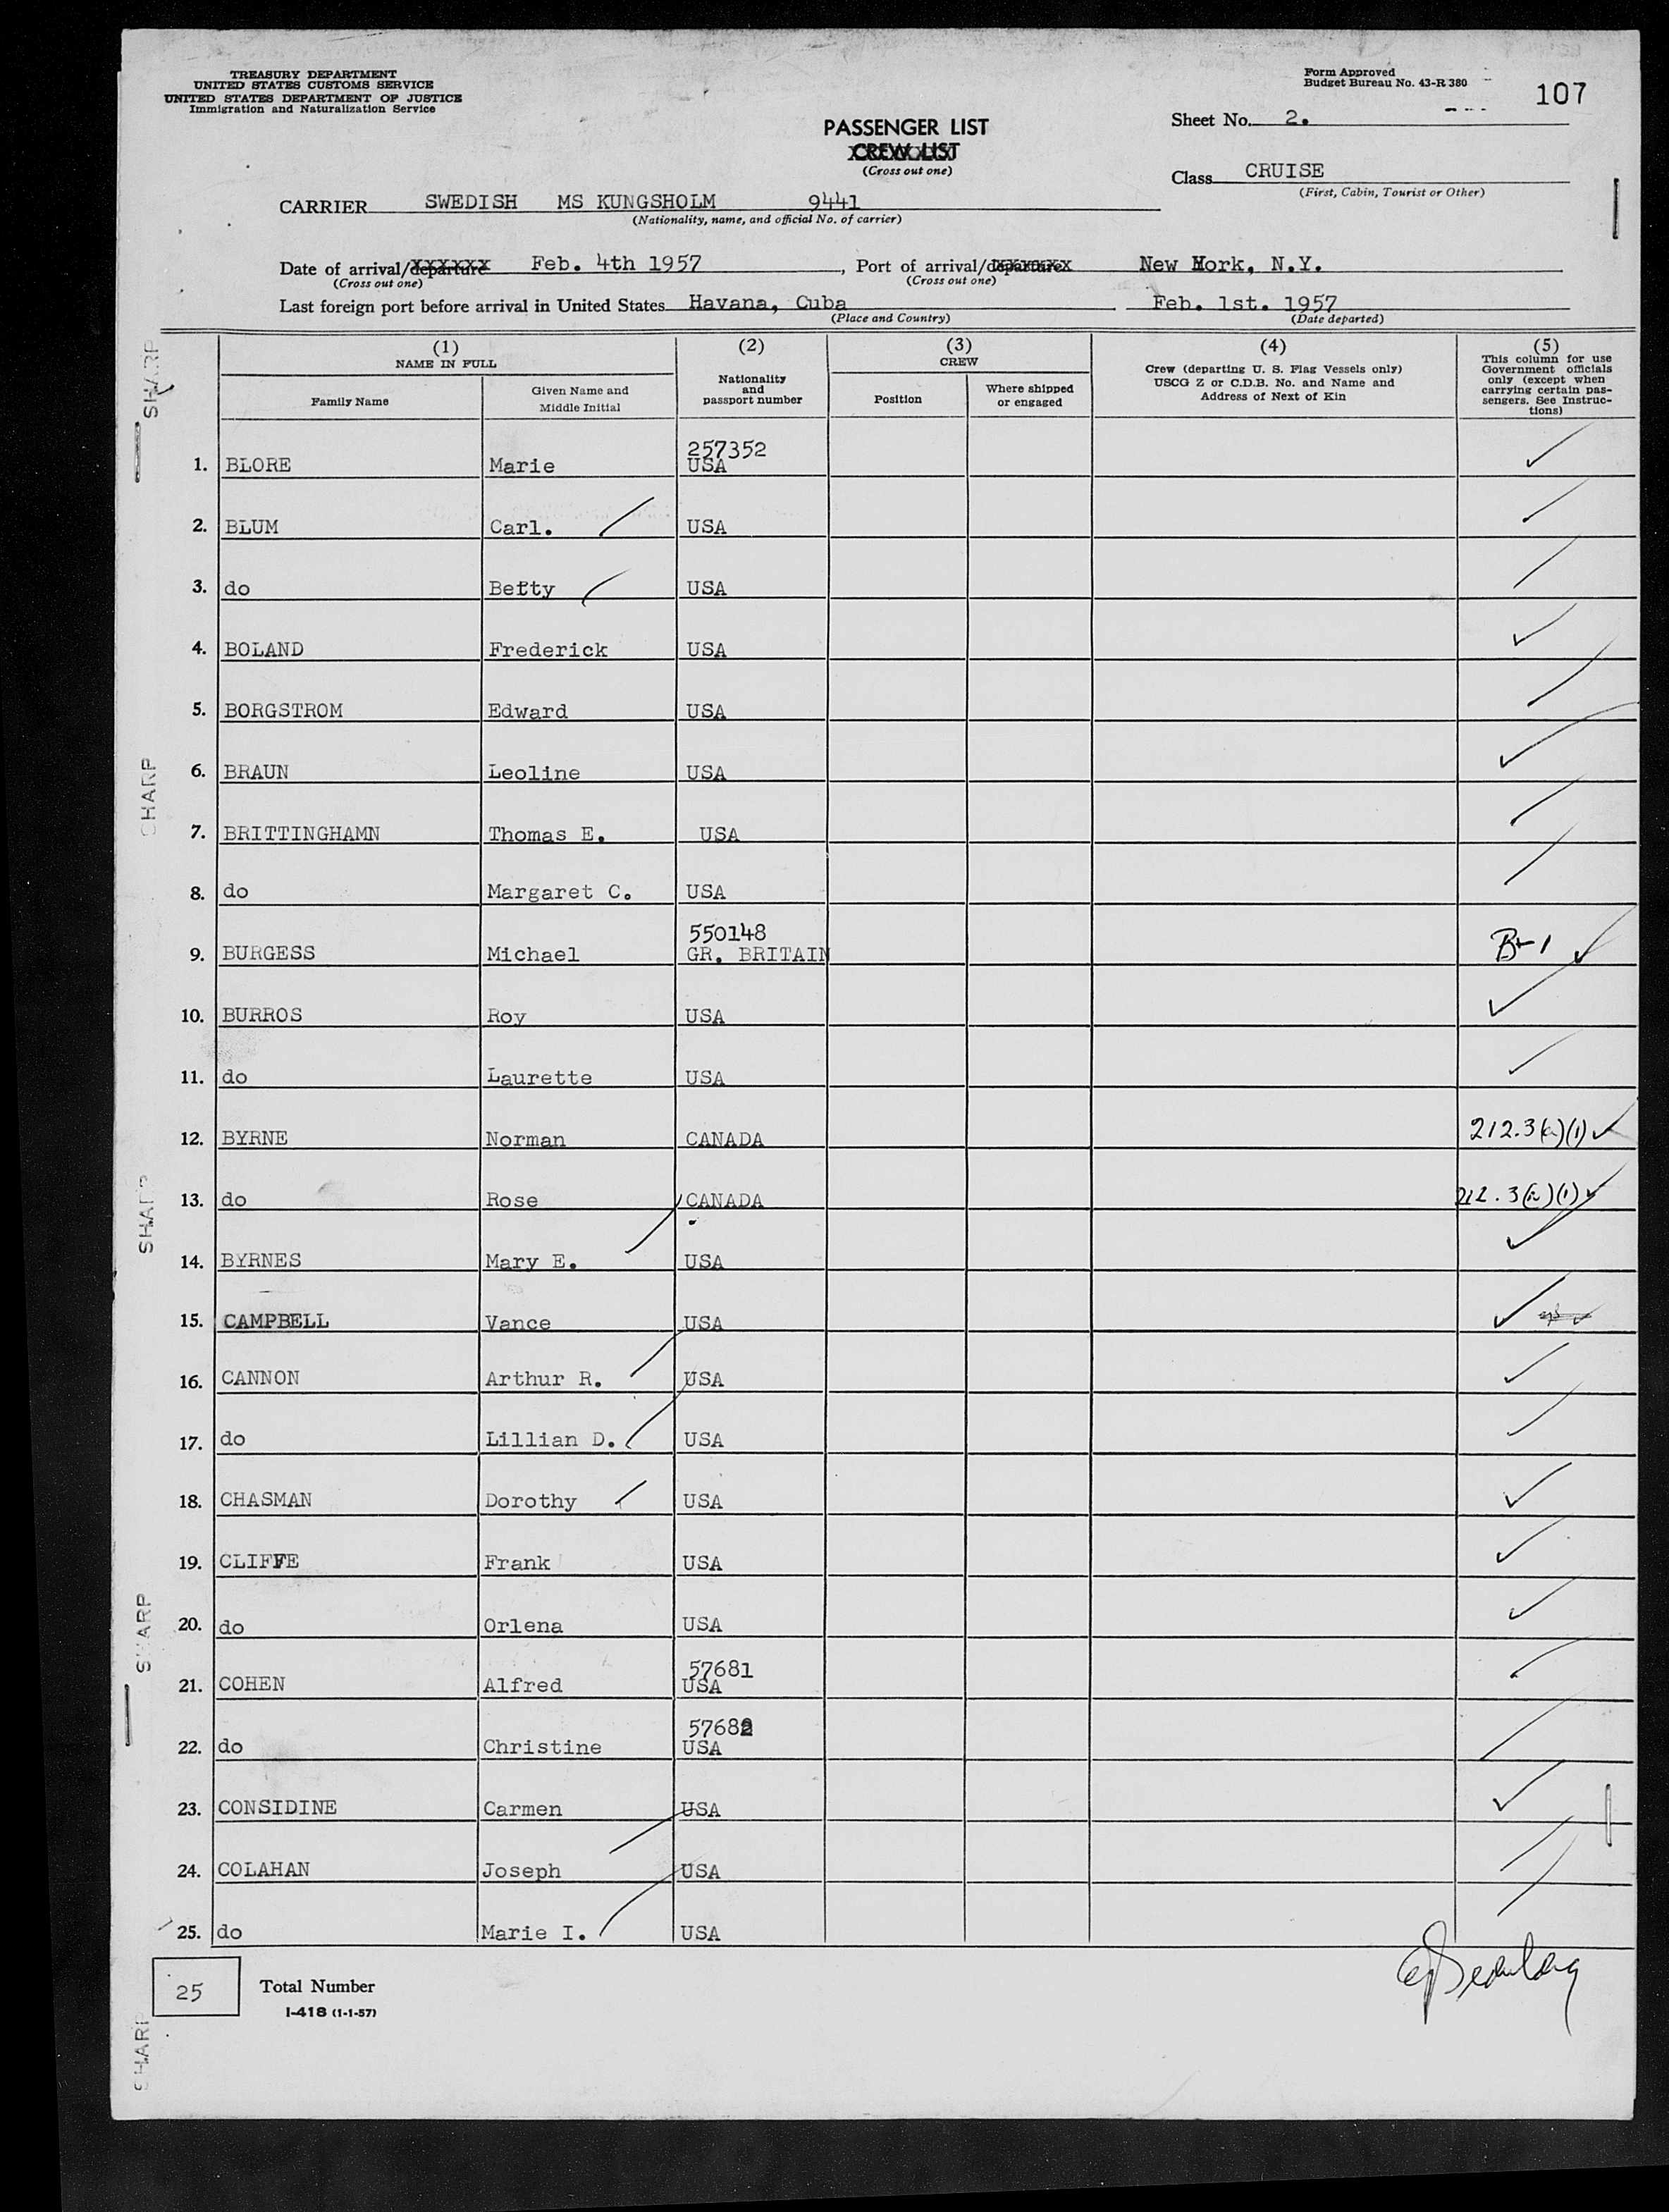 TREASURY DEPARTMENT
UNITED STATES CUSTOMS SERVICE
UNITED STATES DEPARTMENT OF JUSTICE
Immigration and Naturalization Service
Form Approved
Budget Bureau No. 43-R 380
107
Sheet No. 2.
PASSENGER LIST
CREW LIST
(Cross out one)
Class CRUISE
(First, Cabin, Tourist or Other)
CARRIER SWEDISH MS KUNGSHOLM 9441
(Nationality, name, and official No. of carrier)
Date of arrival/departure Feb. 4th 1957, Port of arrival/departure New York, N.Y.
(Cross out one) (Cross out one)
Last foreign port before arrival in United States Havana, Cuba Feb. 1st. 1957
(Place and Country) (Date departed)
(1) NAME IN FULL
Family Name
Given Name and Middle Initial
(2) Nationality and passport number
(3) CREW
Position
Where shipped or engaged
(4) Crew (departing U. S. Flag Vessels only) USCG Z or C.D.B. No. and Name and Address of Next of Kin
(5) This column for use Government officials only (except when carrying certain passengers. See Instructions)
1. BLORE Marie 257352 USA
2. BLUM Carl. USA
3. do Betty USA
4. BOLAND Frederick USA
5. BORGSTROM Edward USA
6. BRAUN Leoline USA
7. BRITTINGHAMN Thomas E. USA
8. do Margaret C. USA
9. BURGESS Michael 550148 GR. BRITAIN B-1
10. BURROS Roy USA
11. do Laurette USA
12. BYRNE Norman CANADA 212.3(a)(1)
13. do Rose CANADA 212.3(a)(1)
14. BYRNES Mary E. USA
15. CAMPBELL Vance USA
16. CANNON Arthur R. USA
17. do Lillian D. USA
18. CHASMAN Dorothy USA
19. CLIFFE Frank USA
20. do Orlena USA
21. COHEN Alfred 57681 USA
22. do Christine 57682 USA
23. CONSIDINE Carmen USA
24. COLAHAN Joseph USA
25. do Marie I. USA
25 Total Number
I-418 (1-1-57)
SHARP
SHARP
SHARP
SHARP
SHARP